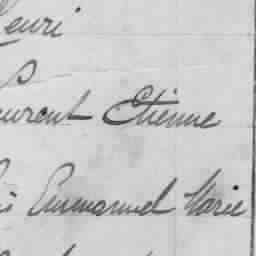 Henri
Laurent Etienne
Emmanuel Marie